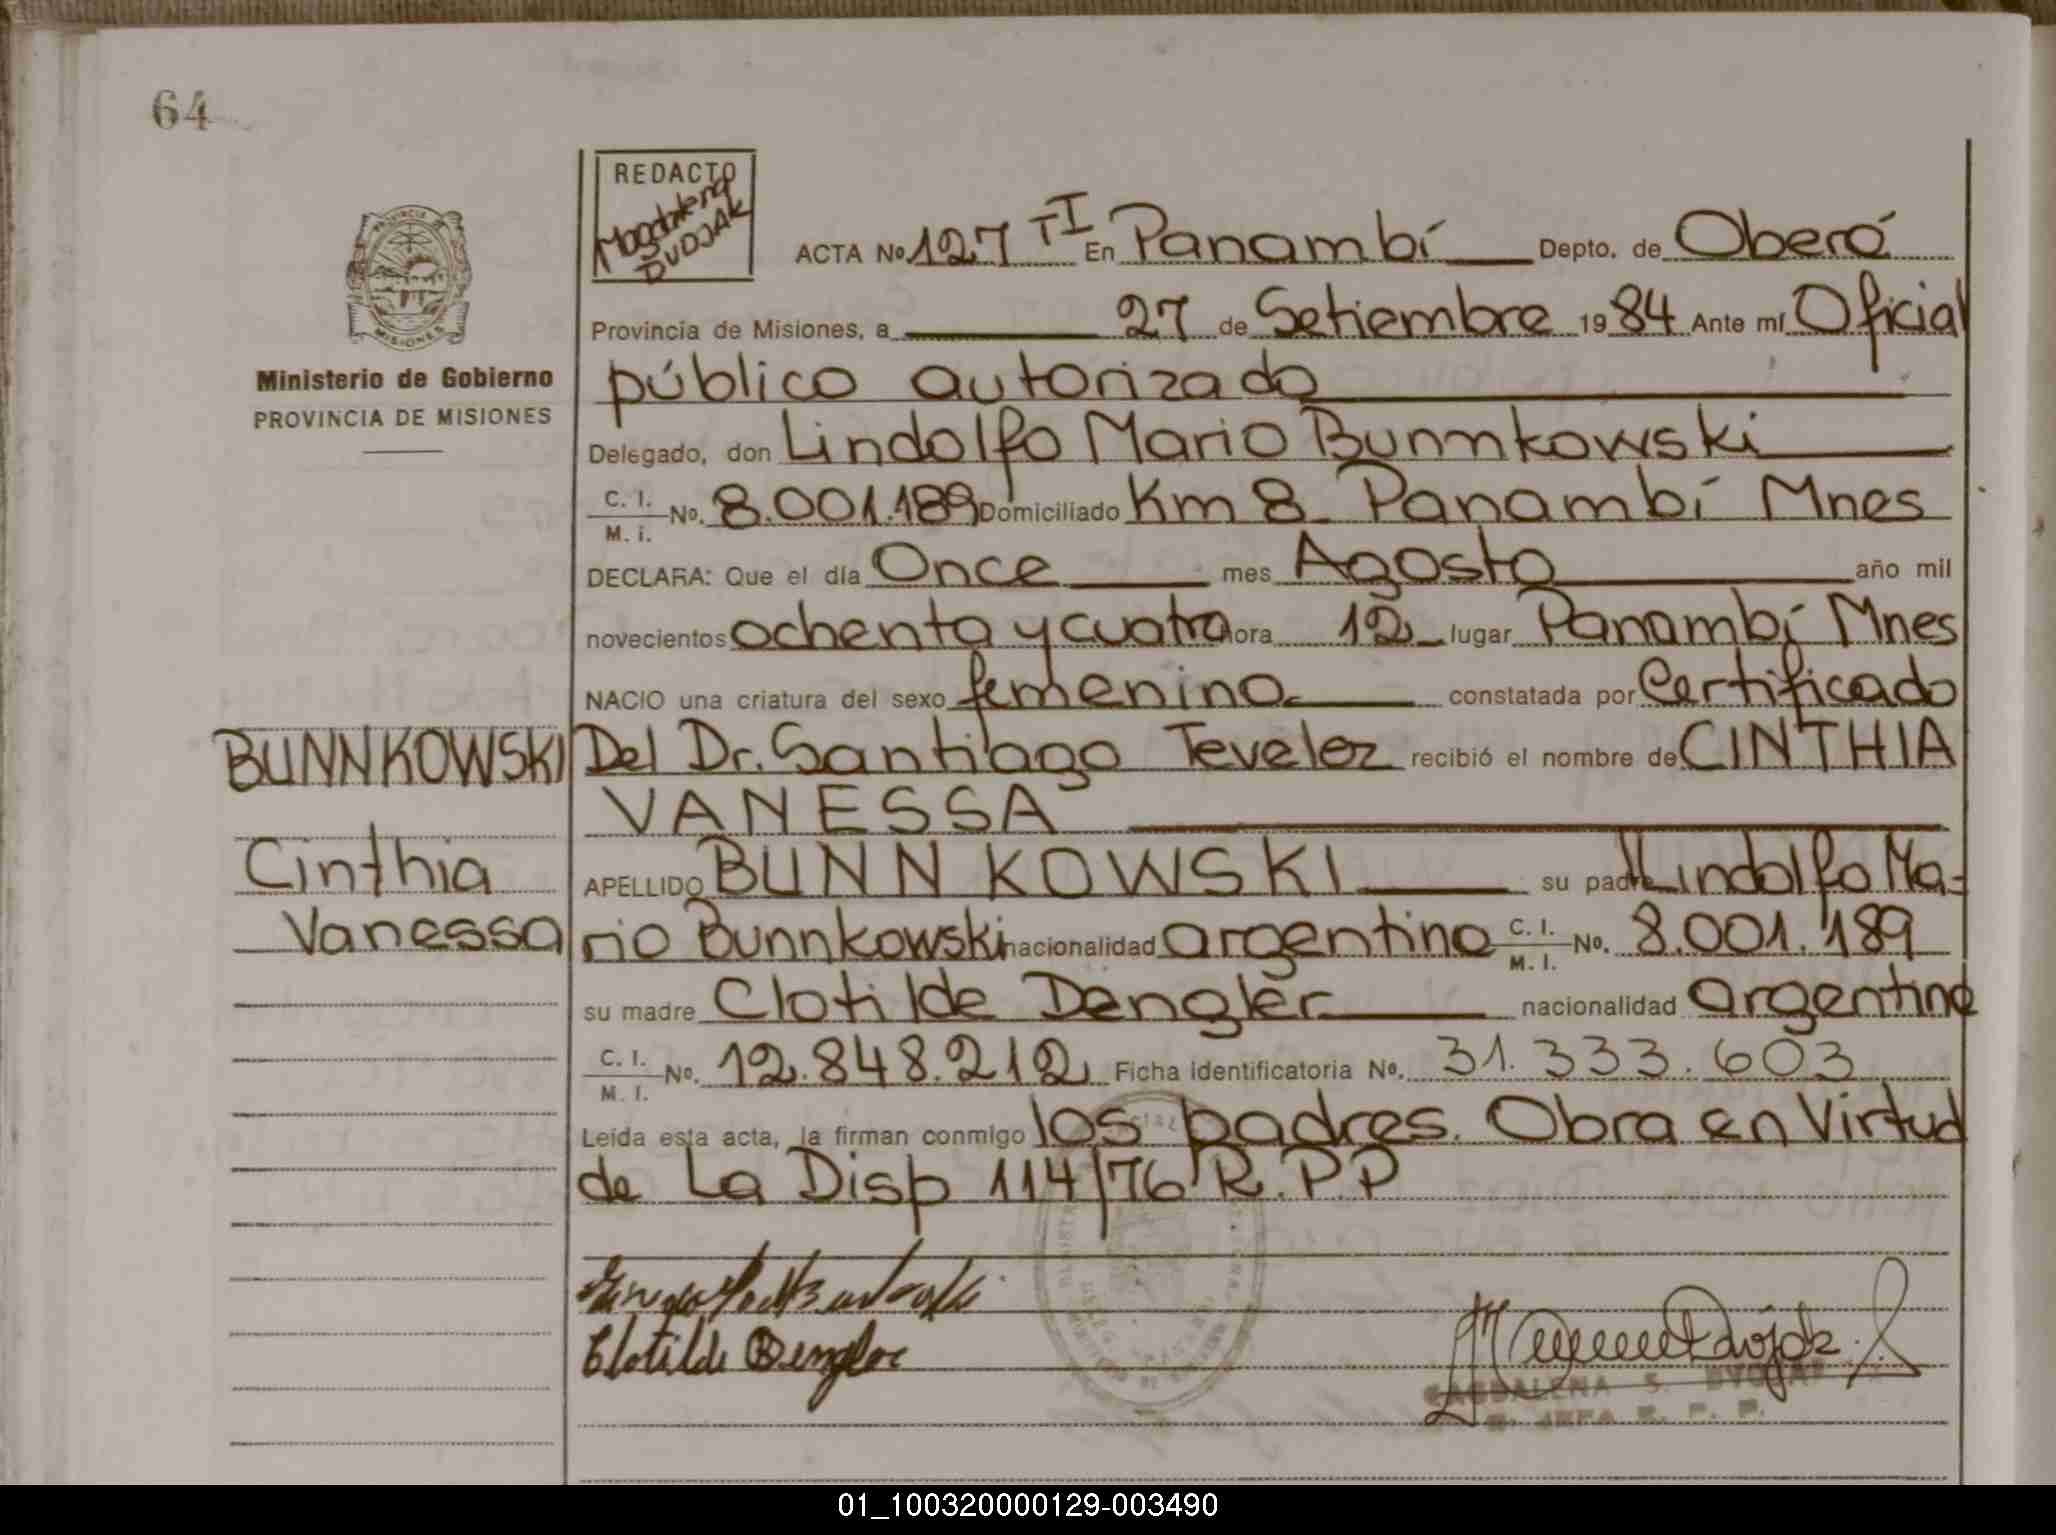 64
REDACTO
Magdalena
DVOJAK
ACTA No 127 TI En Panambí Depto. de Oberá
Provincia de Misiones, a 27 de Setiembre 19 84 Ante mí Oficial
Ministerio de Gobierno
PROVINCIA DE MISIONES
público autorizado
Delegado, don Lindolfo Mario Bunnkowski
C. I. / M. i. No. 8.001.189 Domiciliado Km 8 Panambí Mnes
DECLARA: Que el día Once mes Agosto año mil
novecientos ochenta y cuatro hora 12 lugar Panambí Mnes
NACIO una criatura del sexo femenino constatada por Certificado
BUNNKOWSKI
Del Dr. Santiago Tevelez recibió el nombre de CINTHIA
VANESSA
Cinthia
Vanessa
APELLIDO BUNNKOWSKI su padre Lindolfo Ma-
rio Bunnkowski nacionalidad argentino C. I. / M. I. No. 8.001.189
su madre Clotilde Dengler nacionalidad argentina
C. I. / M. I. No. 12.848.212 Ficha identificatoria No. 31.333.603
Leída esta acta, la firman conmigo los padres. Obra en Virtud
de La Disp 114/76 R.P.P
Clotilde Dengler
MAGDALENA S. DVOJAK
JEFA R. P. P.
PROVINCIA
MISIONES
01_100320000129-003490